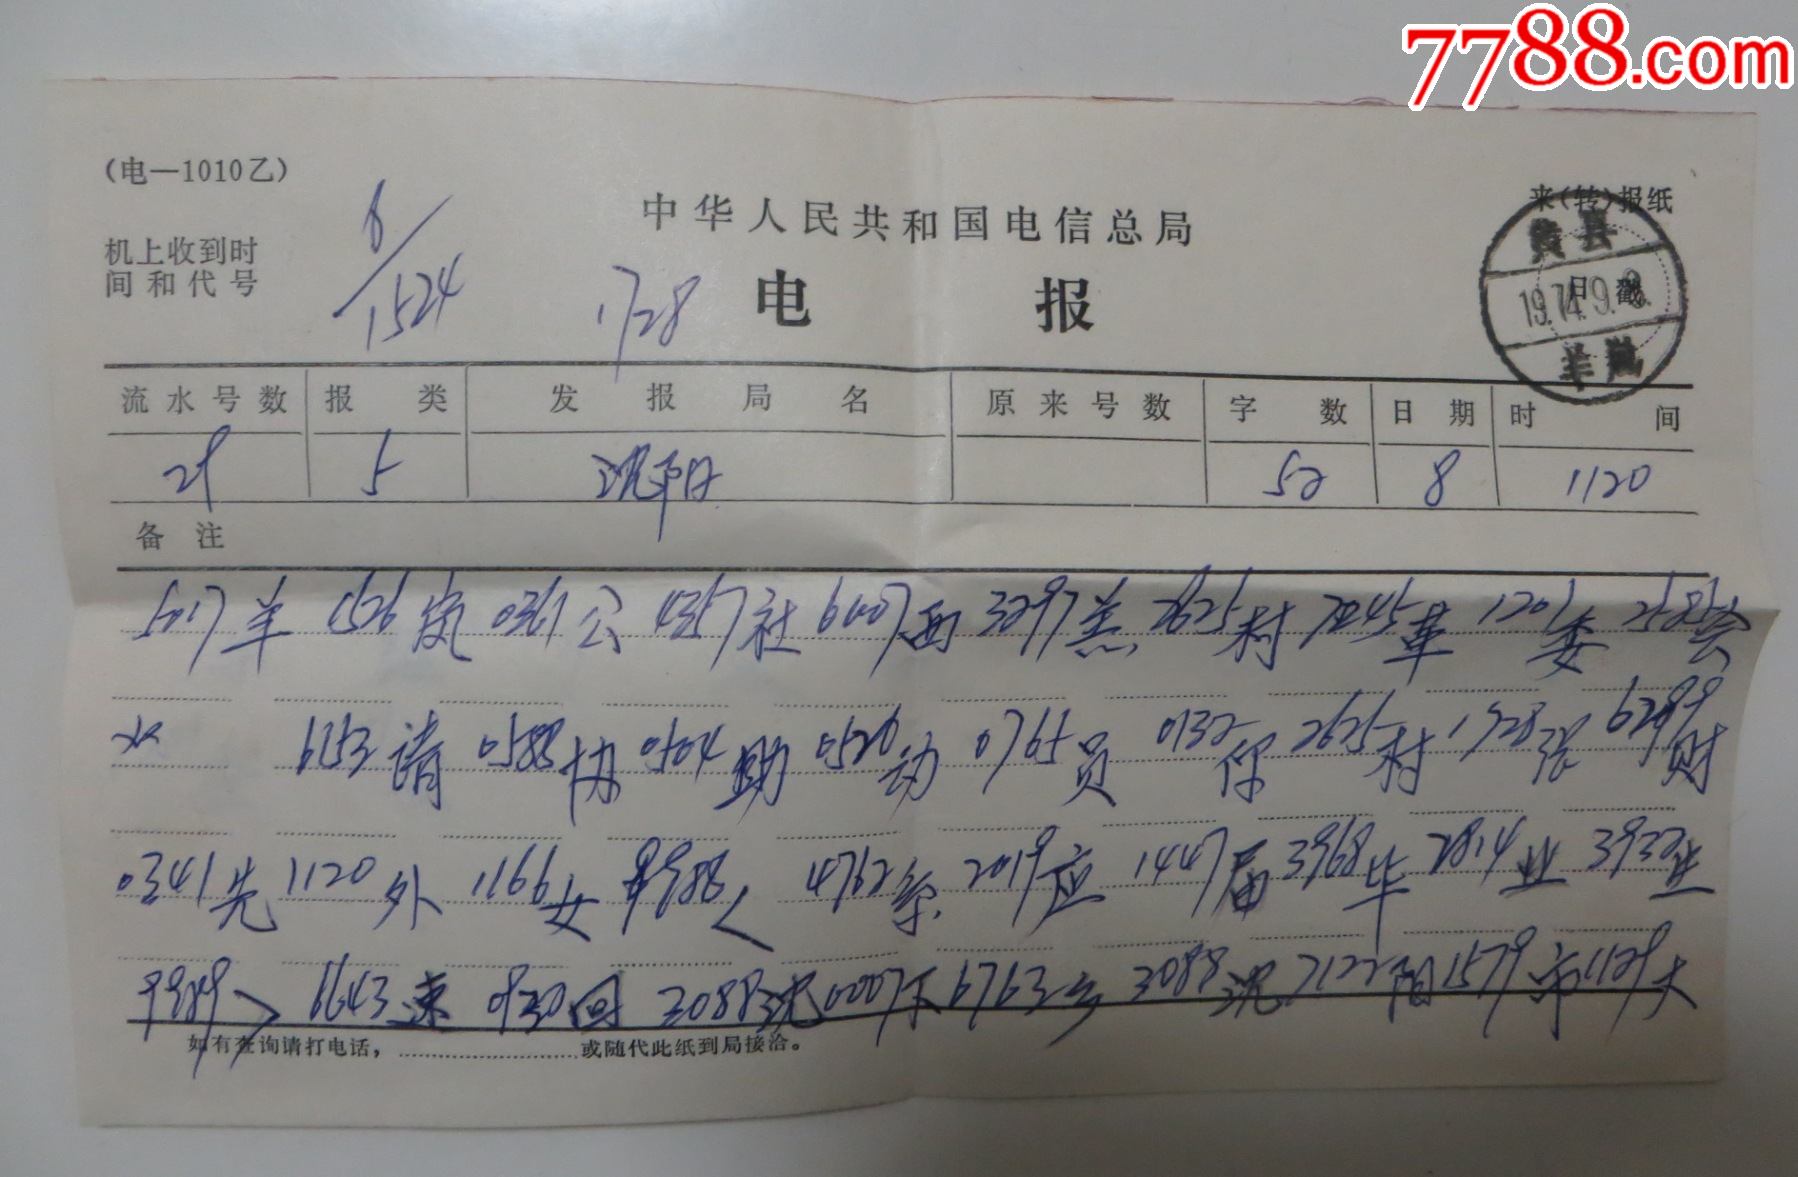 7788.com
(电—1010乙)
来(转)报纸
中华人民共和国电信总局
机上收到时
间和代号
8/1524
1728
电 报
黄县
日戳
1974.9.8.
羊岚
流水号数 报类 发报局名 原来号数 字数 日期 时间
29 5 沈阳 52 8 1120
备注
5017羊 1526岚 0361公 4357社 6007西 3297羔 2625村 7245革 1201委 2585会
6153请 0588协 0504助 0520动 0765员 0132你 2625村 1728张 6299财
0341先 1120外 1166女 9988< 4762系 2019应 1447届 3968毕 2814业 3932生
9989> 6643速 0930回 3088沈 0007下 6763乡 3088沈 7122阳 1579市 1129大
如有查询请打电话,………………或随代此纸到局接洽。